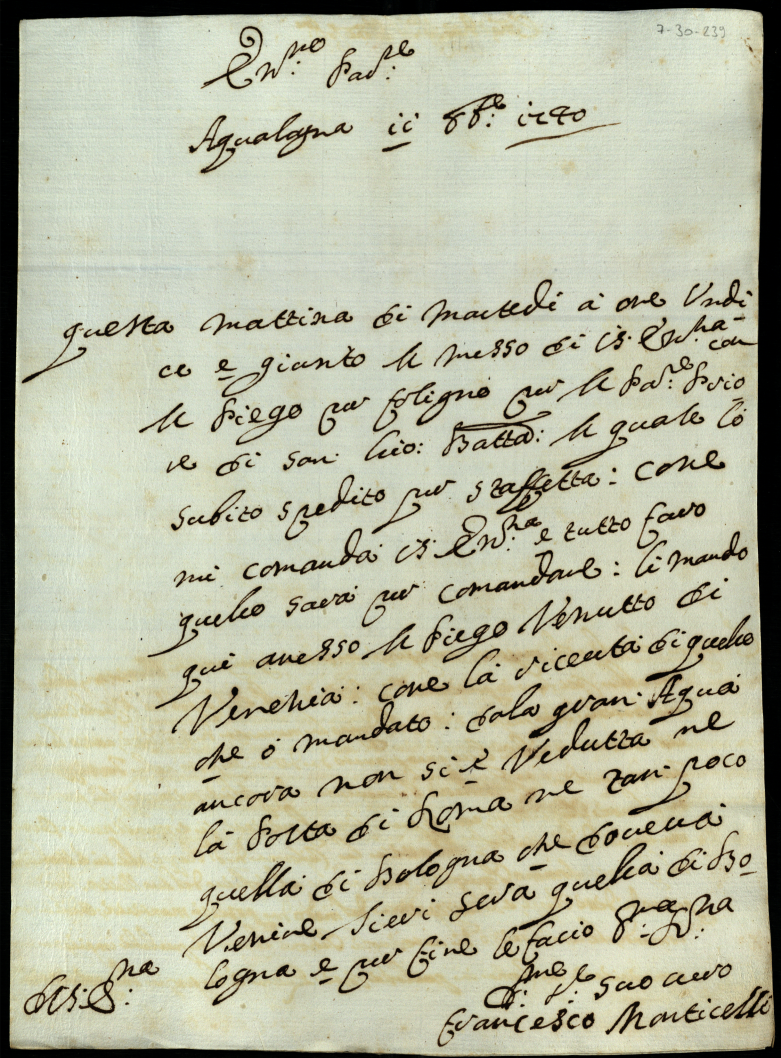 7-30-239
Em.mo Pad.e
Aqualagna ii 8b.e 1740
questa mattina di Martedi a ore Undi
ce e giunto il messo di V. Em.za con
il Piego per Foligno per il Pad.e Prio
re di san Gio: Batta: il quale lò
subito spedito per staffetta: come
mi comanda V. Em.za e tutto faro
quello sara per comandare: li mando
qui anesso il Piego Venutto di
Venehia: come la riceuta di quello
che ò mandato: dala gran Aqua
ancora non si è Vedutta ne
la Posta di Roma ne tan poco
quella di Bologna che doueua
Venire Sieri sera quella di Bo
logna e per fine le facio
di V. E.na
suo servo
Francesco Monticelli